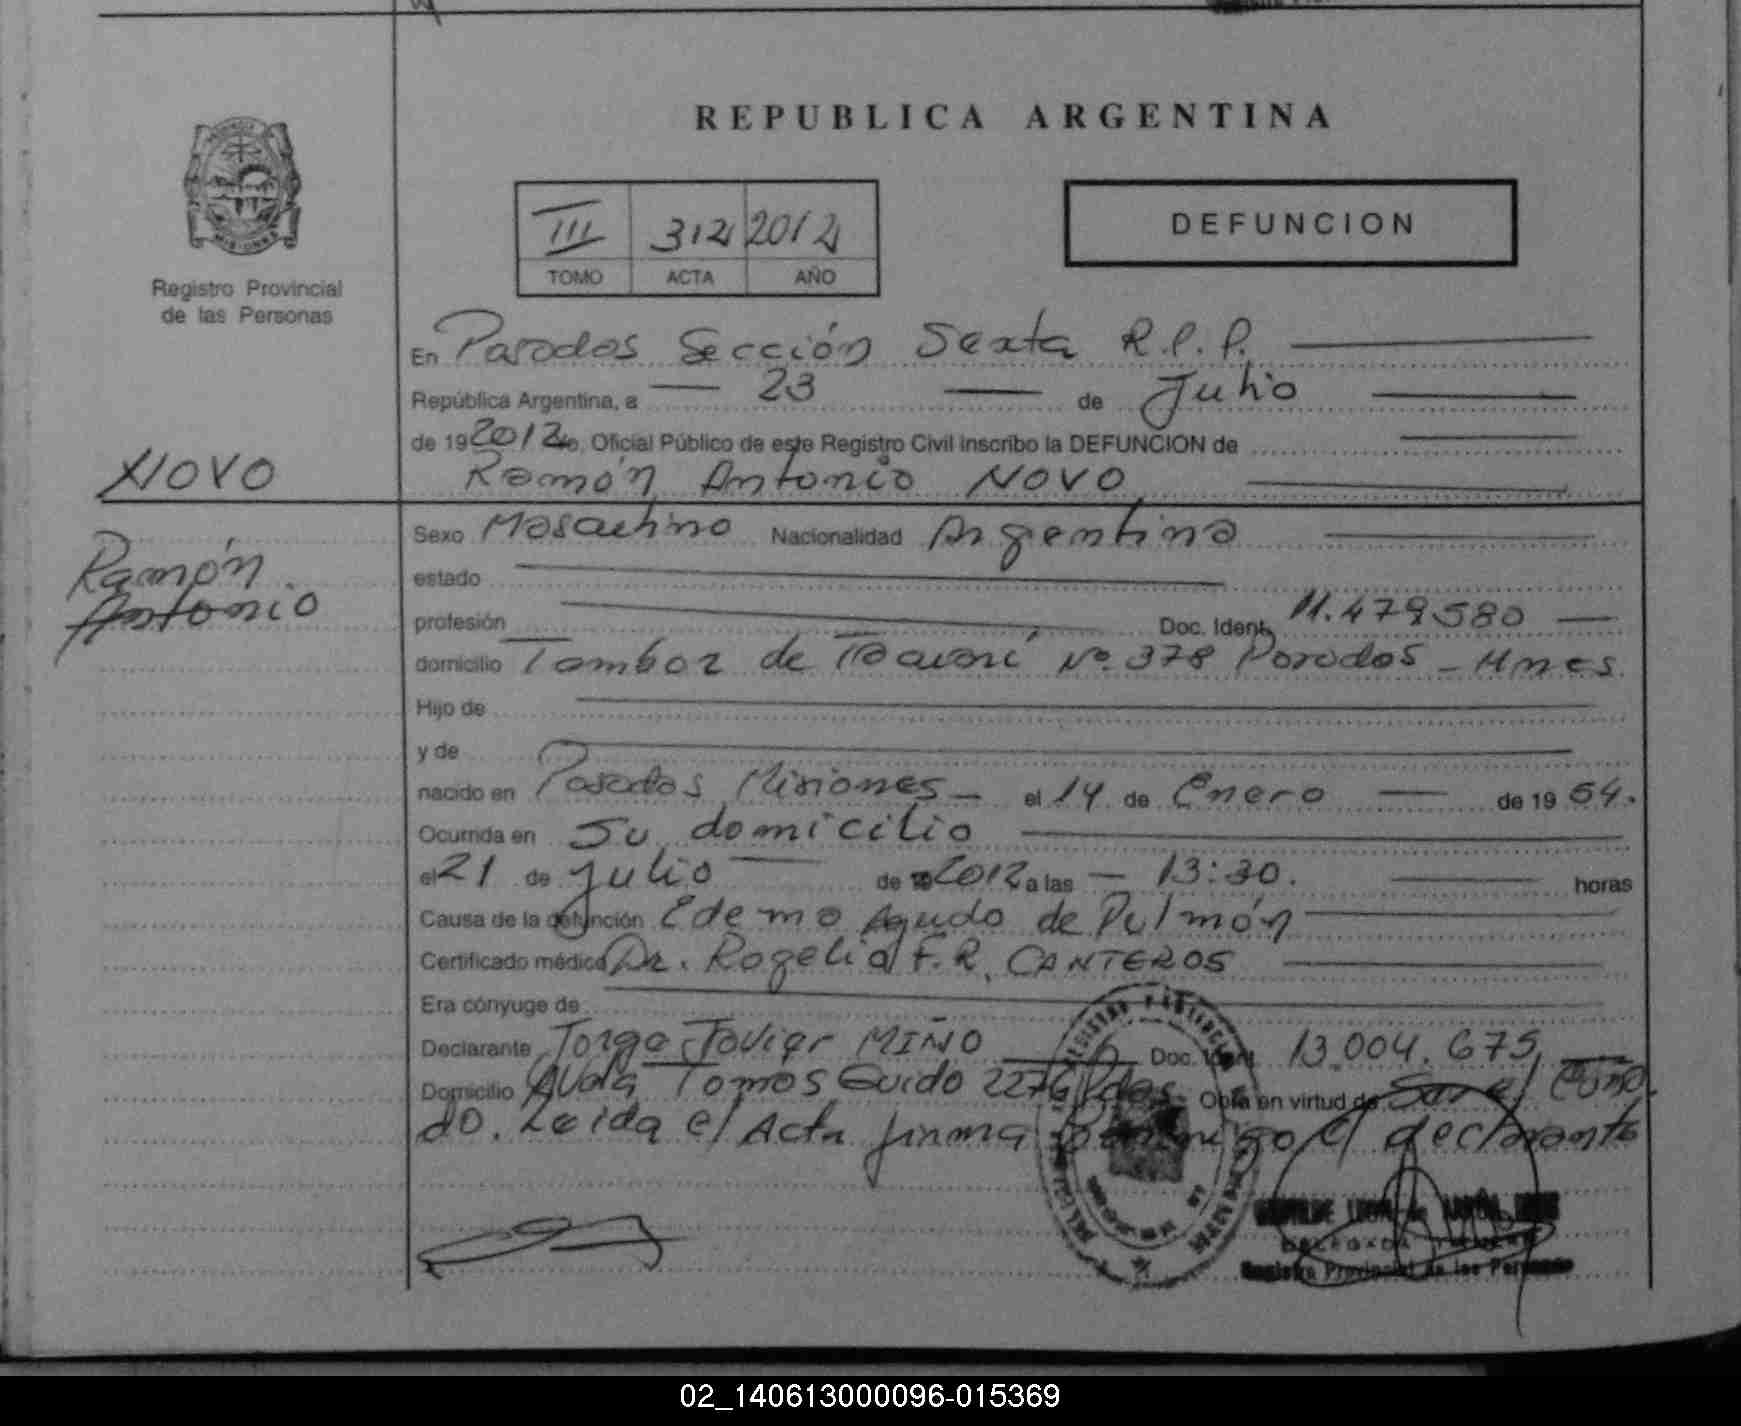 REPUBLICA ARGENTINA
III 312 2012
TOMO ACTA AÑO
DEFUNCION
Registro Provincial
de las Personas
En Posadas Sección Sexta R.P.P.
República Argentina, a 23 de Julio
de 19 2012 Oficial Público de este Registro Civil inscribo la DEFUNCION de
NOVO
Ramón Antonio NOVO
Ramón
Antonio
Sexo Masculino Nacionalidad Argentina
estado
profesión Doc. Ident. 11.479580
domicilio Tambor de Tacuarí Nº 378 Posadas - Mnes.
Hijo de
y de
nacido en Posadas Misiones - el 14 de Enero de 19 54.
Ocurrida en Su domicilio
el 21 de Julio de 2012 a las 13:30. horas
Causa de la defunción Edema Agudo de Pulmón
Certificado médico Dr. Rogelio F.R. CANTEROS
Era cónyuge de
Declarante Jorge Javier MIÑO Doc. Ident. 13.004.675
Domicilio Avda Tomas Guido 2276 Pdas. Obra en virtud de
do. Leida el Acta firma el declarante
Registro Provincial de las Personas
02_140613000096-015369